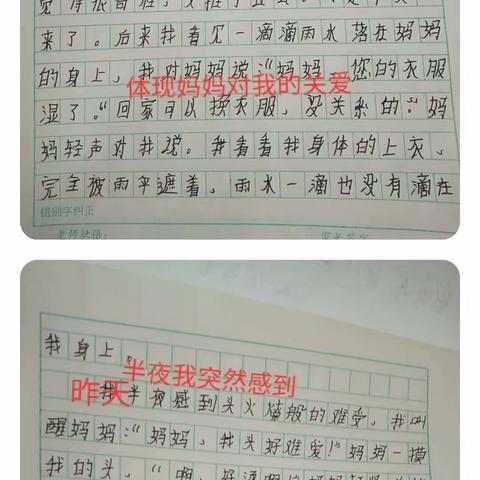 来了。后来我看见一滴滴雨水落在妈妈
的身上，我对妈妈说：“妈妈，您的衣服
体现妈妈对我的关爱
湿了。”“回家可以换衣服，没关系的。”妈
妈轻声对我说。我看看我身体的上衣，
完全被雨伞遮着，雨水一滴也没有滴在
错别字纠正
我身上。
半夜我突然感到
昨天
我半夜感到头火燎般的难受，我叫
醒妈妈：“妈妈，我头好难受！”妈妈一摸
我的头，“啊，好